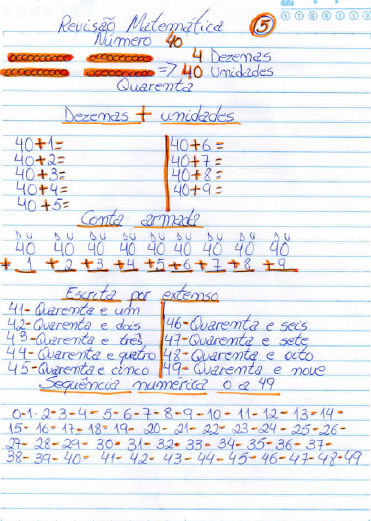 data
S T Q Q S S D
Revisão Matemática 5
Número 40
4 Dezenas
=> 40 Unidades
Quarenta
Dezenas + unidades
40+1= 40+6=
40+2= 40+7=
40+3= 40+8=
40+4= 40+9=
40+5=
Conta armada
DU DU DU DU DU DU DU DU DU
40 40 40 40 40 40 40 40 40
+ 1 +2 +3 +4 +5 +6 +7 +8 +9
Escrita por extenso
41- Quarenta e um
42- Quarenta e dois 46- Quarenta e seis
43- Quarenta e três, 47- Quarenta e sete
44- Quarenta e quatro 48- Quarenta e oito
45- Quarenta e cinco 49- Quarenta e nove
Sequência numérica 0 a 49
0-1-2-3-4-5-6-7-8-9-10-11-12-13-14-
15-16-17-18-19-20-21-22-23-24-25-26-
27-28-29-30-31-32-33-34-35-36-37-
38-39-40-41-42-43-44-45-46-47-48-49